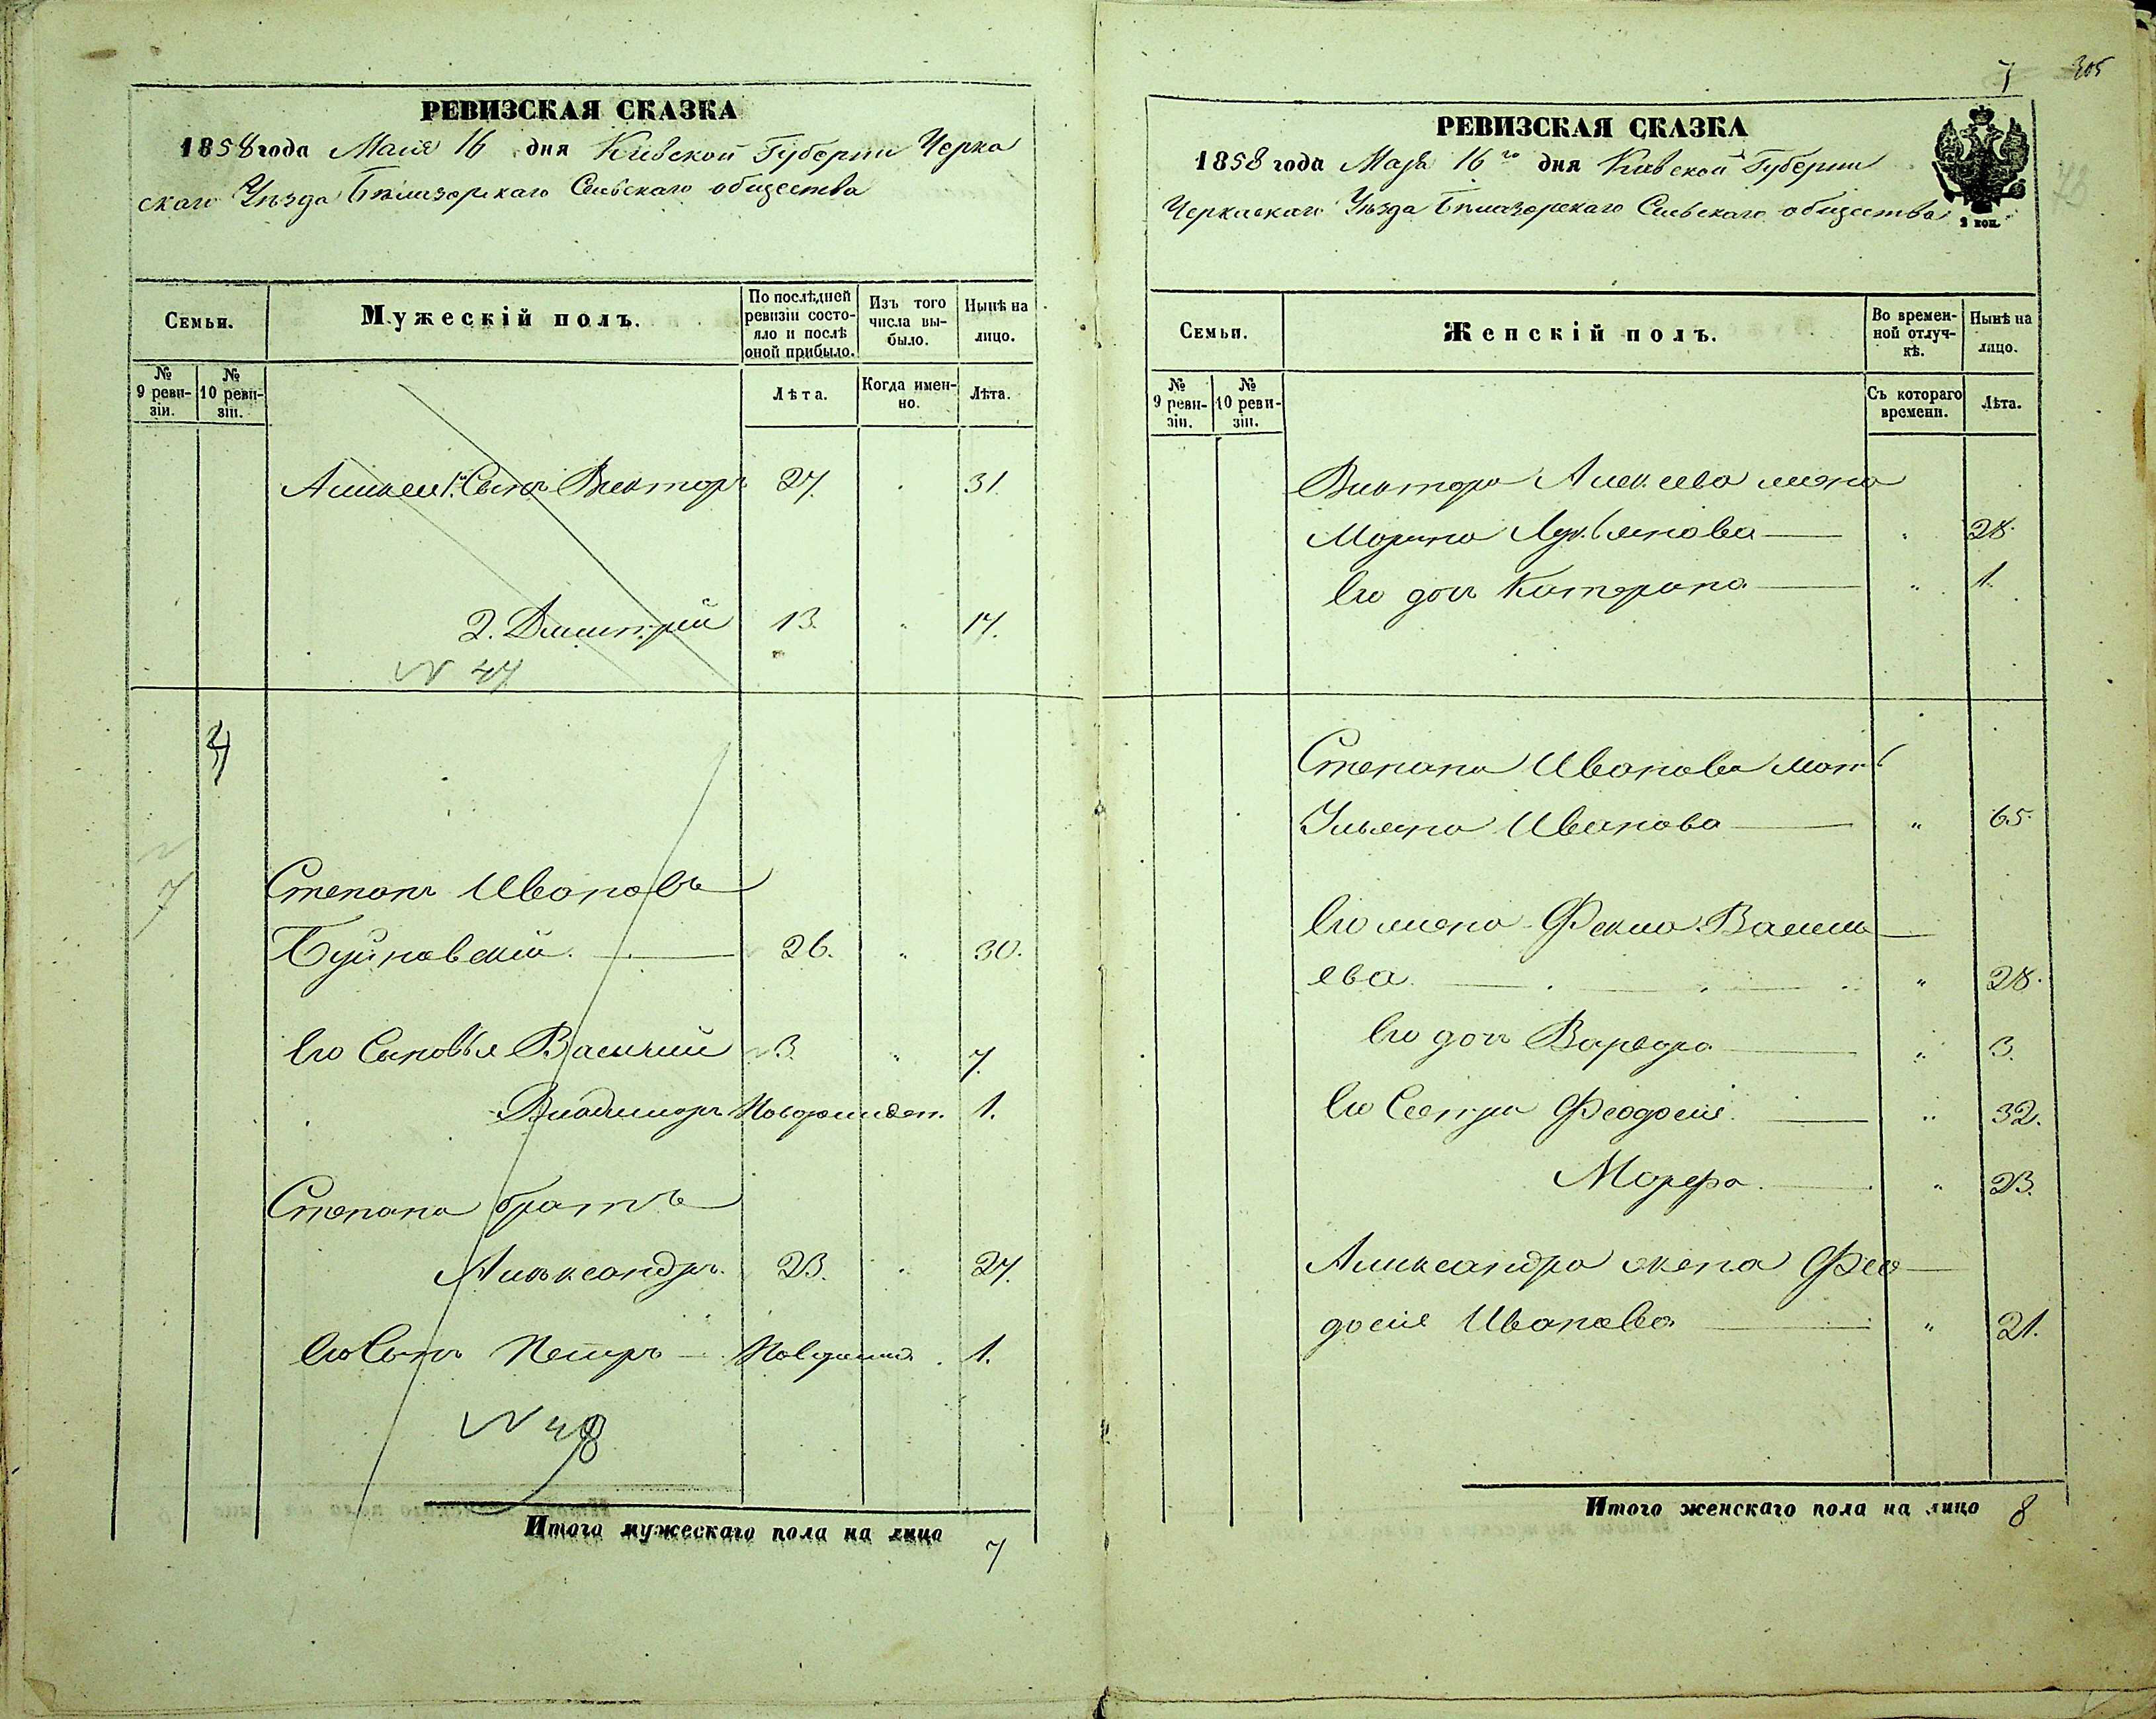 РЕВИЗСКАЯ СКАЗКА
1858 года Маия 16 дня Киевской Губерніи Черка
скаго Уѣзда Бѣлазорскаго Сельскаго общества
Семьи.
Мужескій полъ.
По послѣдней ревизіи состо-
яло и послѣ
оной прибыло.
Изъ того
числа вы-
было.
Нынѣ на
лицо.
№
9 реви-
зіи.
№
10 реви-
зіи.
Лѣта.
Когда имен-
но.
Лѣта.
Алексея 1й Сынъ Викторъ 27. 31.
2. Дмитрій 13. 17.
N 47
4
7
Степанъ Ивановъ
Буйновскій. 26. " 30.
Его Сыновья Василий 3. " 7.
Владимиръ Новорожден. 1.
Степана братъ
Александръ. 23. " 27.
Его Сынъ Петръ — Новорожд. 1.
N 48
Итого мужескаго пола на лицо 7
7 305
РЕВИЗСКАЯ СКАЗКА
1858 года Мая 16го дня Киевской Губерніи
Черкаскаго Уѣзда Бѣлазорскаго Сельскаго общества
3 коп.
Семьи.
Женскій полъ.
Во времен-
ной отлуч-
кѣ.
Нынѣ на
лицо.
№
9 реви-
зіи.
№
10 реви-
зіи.
Съ котораго
времени.
Лѣта.
Виктора Алексеева жена
Марина Лукьянова — " 28.
Его дочь Катерина — " 1.
Степана Иванова мать
Ульяна Иванова — " 65.
Его жена Фекла Василь
ева — " 28.
Его дочь Варвара — " 3.
Его Сестры Феодосия — " 32.
Марфа. — " 23.
Александра жена Фео
досия Иванова — " 21.
Итого женскаго пола на лицо 8